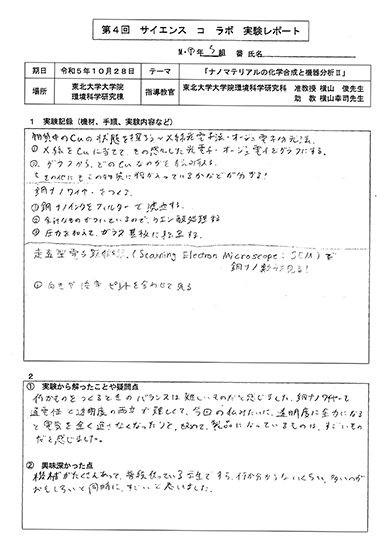 第4回 サイエンス コ ラボ 実験レポート
M・中 5 組 番 氏名
期日 令和5年10月28日 テーマ 「ナノマテリアルの化学合成と機器分析Ⅱ」
場所 東北大学大学院 環境科学研究棟 指導教官 東北大学大学院環境科学研究科 准教授 横山 俊先生
助 教 横山幸司先生
1 実験記録(機材、手順、実験内容など)
物質中のCuの状態を探る〜X線光電子法・オージェ電子分光法
① X線をCuに当てて、その 光電子・オージェ電子をグラフにする。
② グラフから、どのCuなのかを
その他にもこの物質に何が入っているかなどが分かる!
銅ナノワイヤーをつくる
① 銅ナノインクをフィルターで
② 余計なものがついているので、クエン酸処理する
③ 圧力を加えて、ガラス基板に転写する。
走査型電子顕微鏡 (Scanning Electron Microscope : SEM) で
銅ナノ を見る!
① 向きが ピントを合わせて見る
2
① 実験から解ったことや疑問点
何かものをつくるときのバランスは難しいものだと感じました。銅ナノワイヤーも
透明度の両立が難しくて、今回の私みたいに、透明度に全力になる
と電気を全く通さなくなったりで、改めて、製品になっているものは、すごいもの
だと感じました。
② 興味深かった点
機械がたくさんあって、普段使っている先生ですら、何か分からないくらい、多いのが
おもしろいと同時に、すごいと思いました。